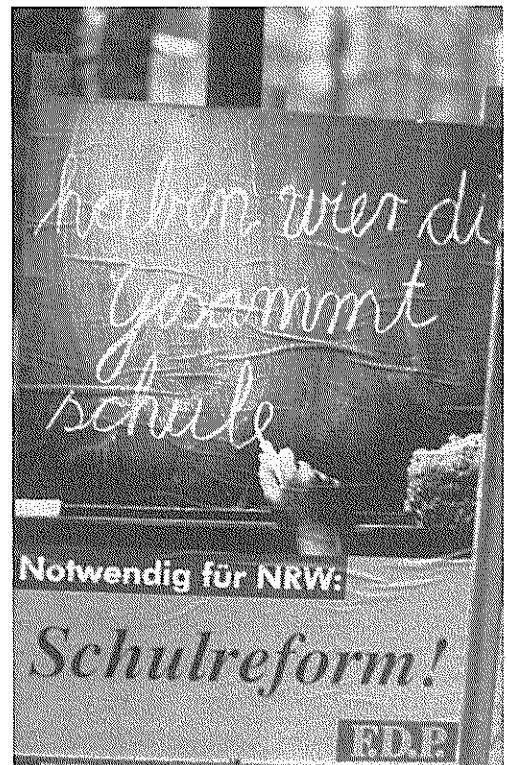 haben wier di
gesammt
schule
Notwendig für NRW:
Schulreform!
F.D.P.